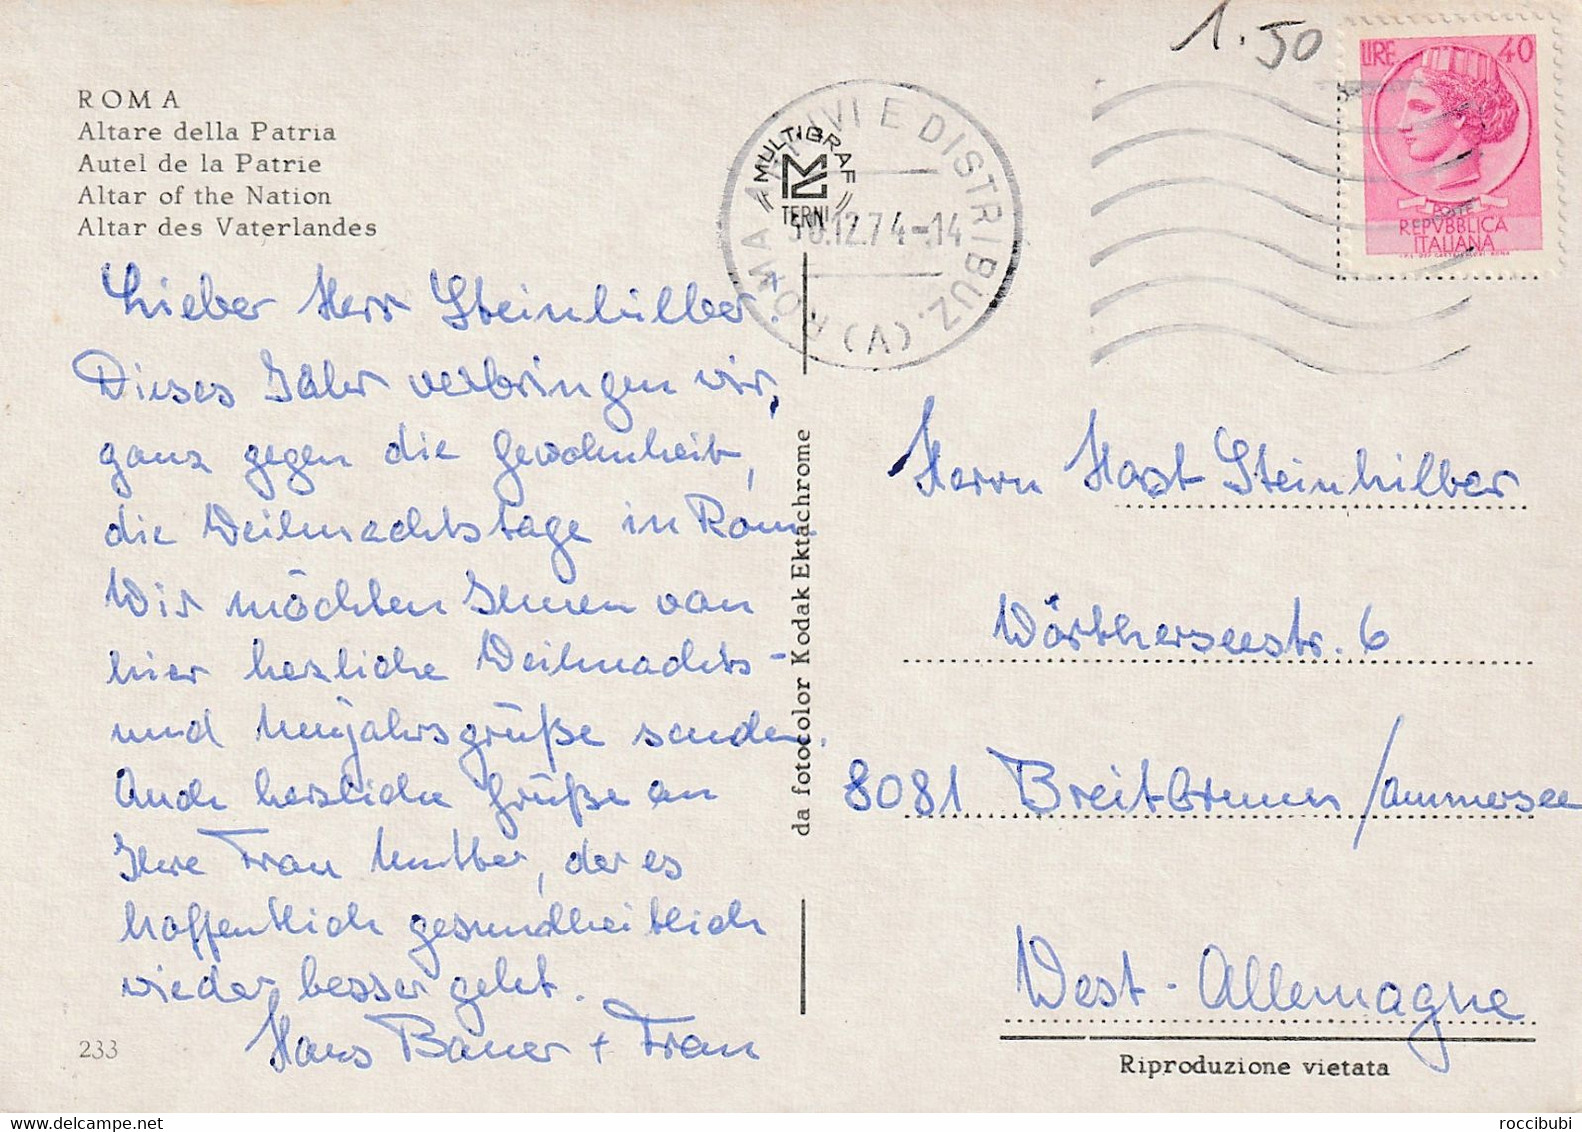 ROMA
Altare della Patria
Autel de la Patrie
Altar of the Nation
Altar des Vaterlandes
Lieber Herr Steinhilber.
Dieses Jahr verbringen wir,
ganz gegen die Gewohnheit,
die Weihnachtstage in Rom.
Wir möchten Ihnen von
hier herzliche Weihnachts-
und Neujahrsgrüße senden.
Auch herzliche Grüße an
Ihre Frau Mutter, der es
hoffentlich gesundheitlich
wieder besser geht.
Hans Bauer + Frau
233
MULTIGRAF
TERNI
ROMA ARRIVI E DISTRIBUZ. (A)
30.12.74-14
da fotocolor Kodak Ektachrome
1.50
LIRE 40
POSTE
REPVBBLICA
ITALIANA
Herrn Horst Steinhilber
Wörtherseestr. 6
8081 Breitbrunn/Ammersee
West-Allemagne
Riproduzione vietata
roccibubi